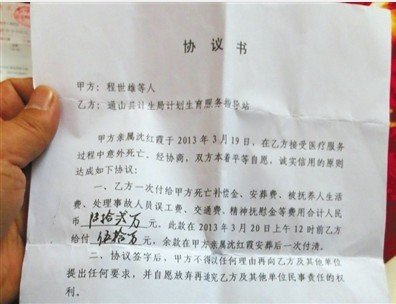 协 议 书
甲方：程世雄等人
乙方：通山县计生局计划生育服务指导站
甲方亲属沈红霞于 2013 年 3 月 19 日，在乙方接受医疗服务
过程中意外死亡，经协商，双方本着平等自愿、诚实信用的原则
达成如下协议：
一、乙方一次付给甲方死亡补偿金、安葬费、被扶养人生活
费、处理事故人员误工费、交通费、精神抚慰金等费用合计人民
币 万元。此款在 2013 年 3 月 20 日上午 12 时前乙方
给付 伍拾万 元，余款在甲方亲属沈红霞安葬后一次付清。
二、协议签字后，甲方不得以任何理由再向乙方及其他单位
提出任何要求，并自愿放弃再追究乙方及其他单位民事责任的权
利。